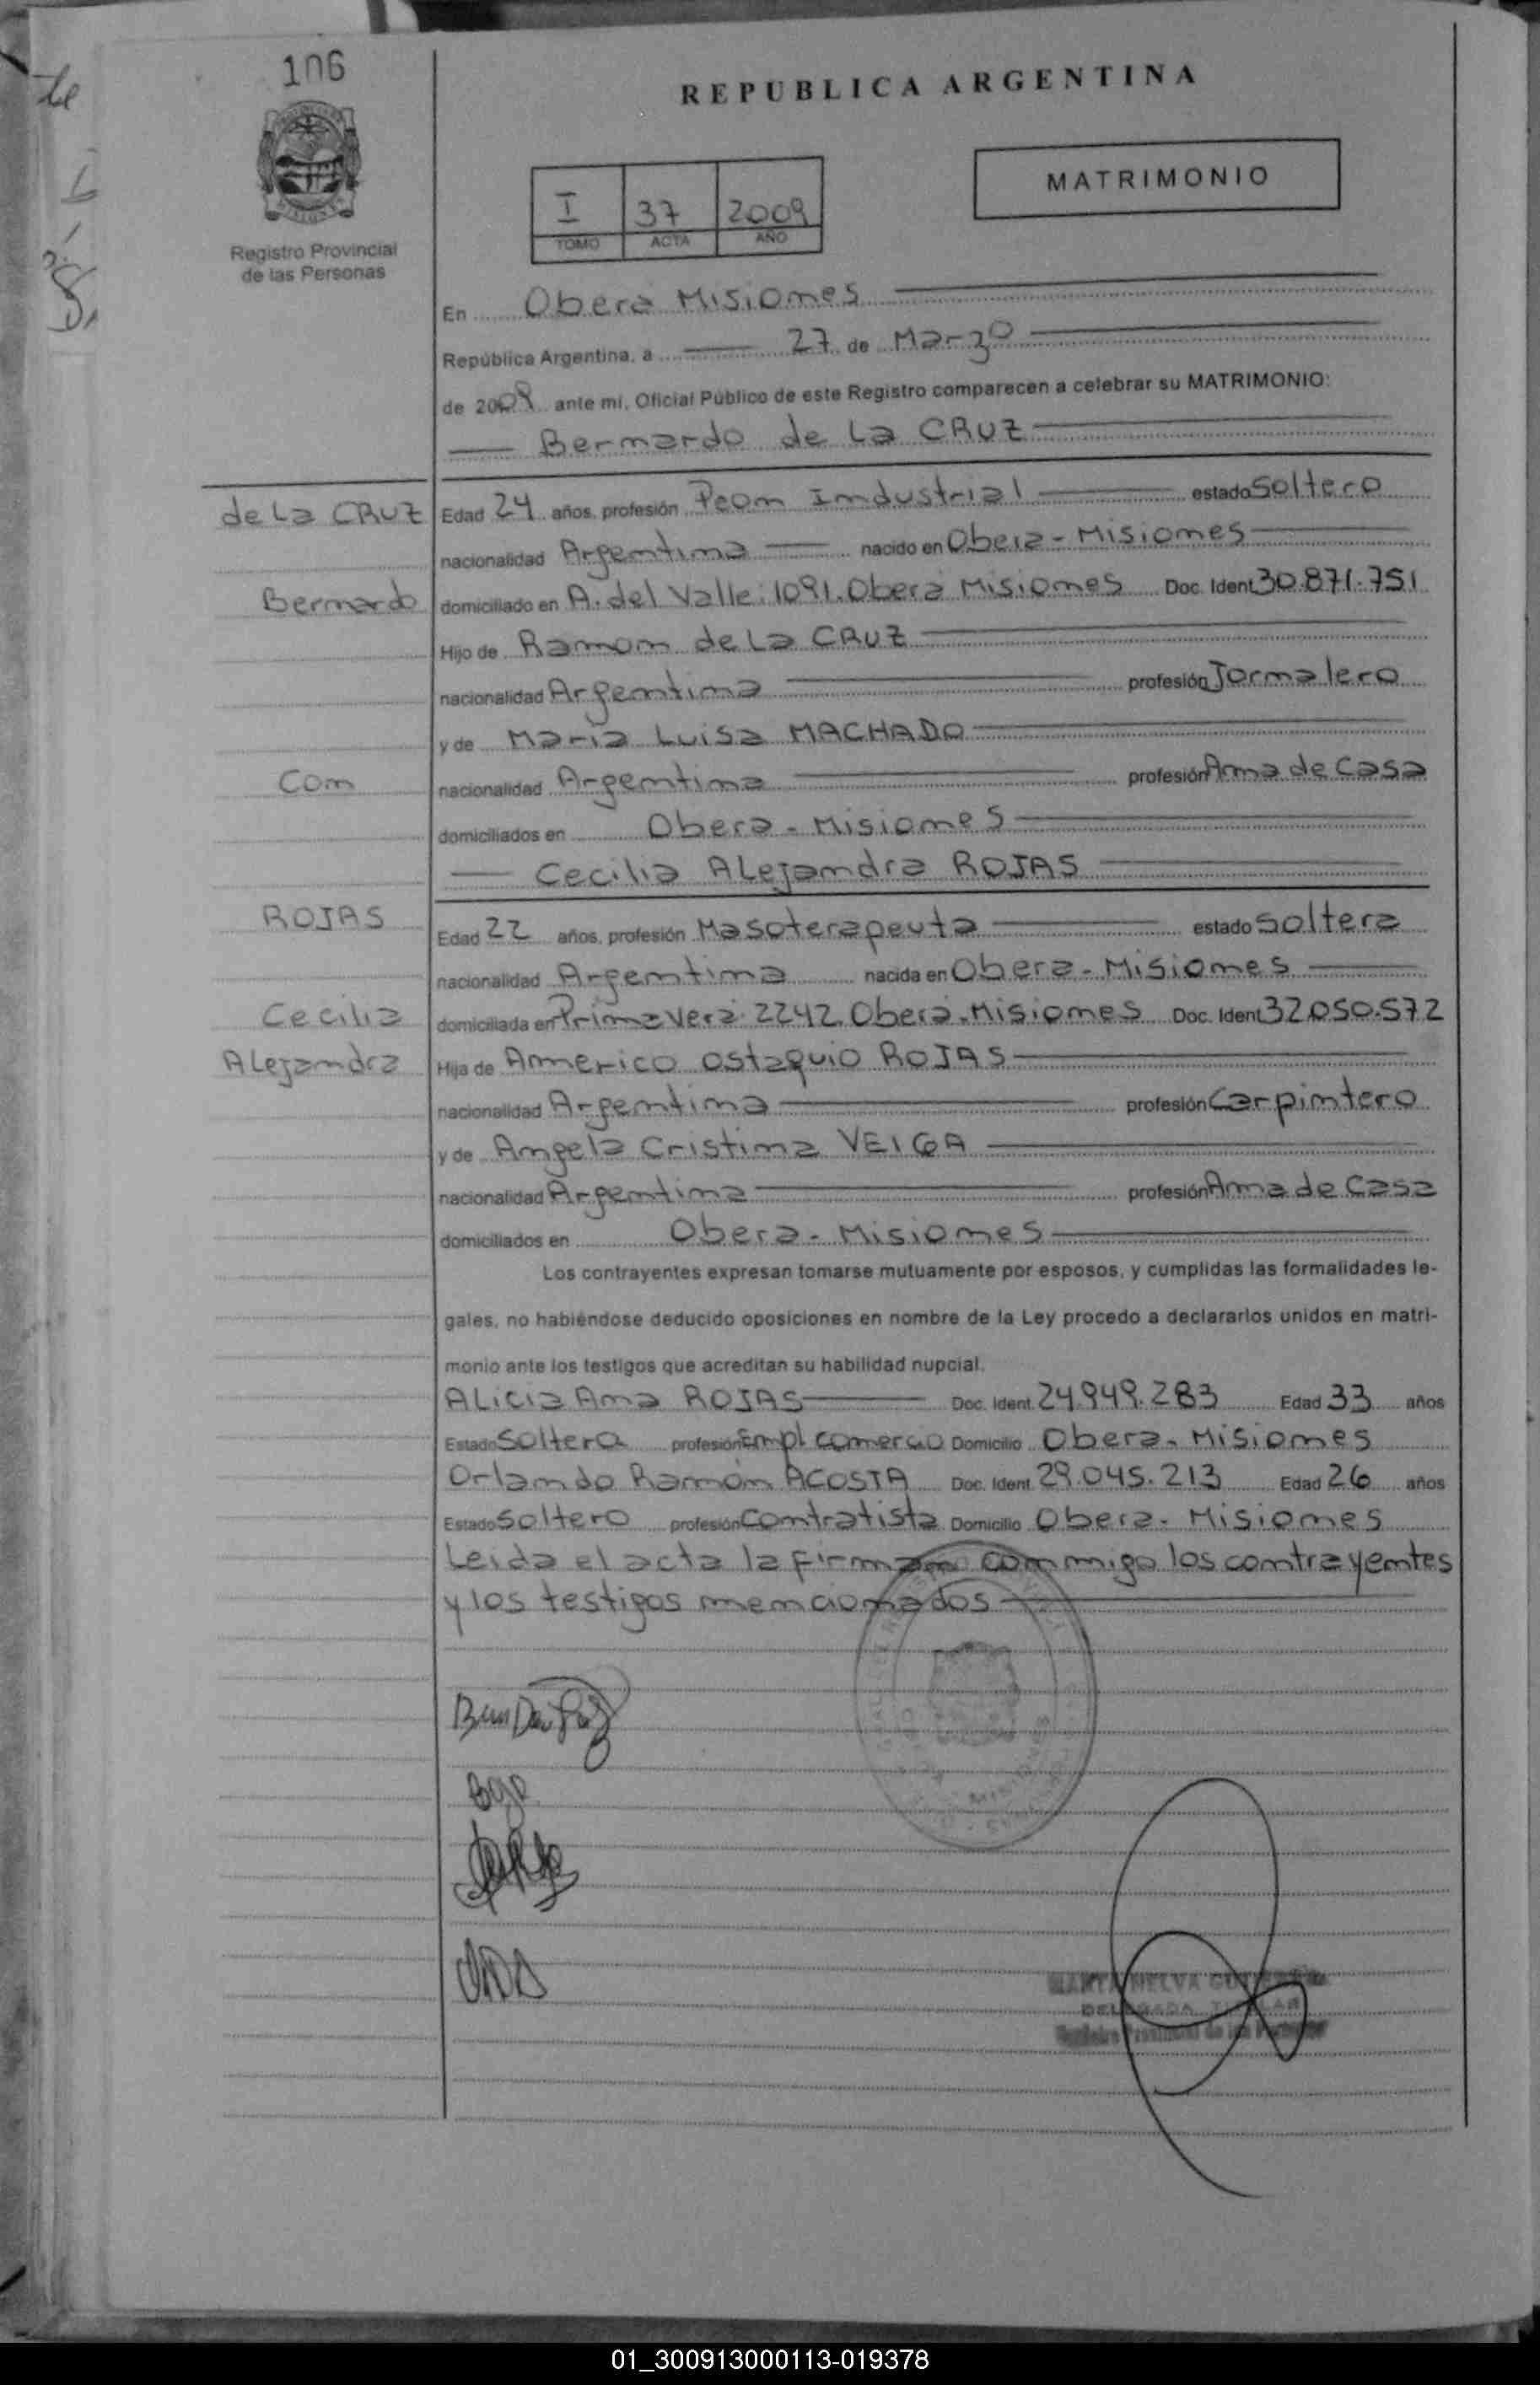 106
REPUBLICA ARGENTINA
MATRIMONIO
I 37 2009
TOMO ACTA AÑO
Registro Provincial
de las Personas
En Obera Misiones
República Argentina, a 27 de Marzo
de 2009 ante mí, Oficial Público de este Registro comparecen a celebrar su MATRIMONIO:
Bernardo de La CRUZ
de La CRUZ
Edad 24 años, profesión Peon Industrial estado Soltero
nacionalidad Argentina nacido en Obera - Misiones
Bernardo
domiciliado en A. del Valle: 1091. Oberá Misiones Doc. Ident 30.871.751
Hijo de Ramon de La CRUZ
nacionalidad Argentina profesión Jornalero
y de María Luisa MACHADO
Con
nacionalidad Argentina profesión Ama de Casa
domiciliados en Obera - Misiones
Cecilia ALejandra ROJAS
ROJAS
Edad 22 años, profesión Masoterapeuta estado Soltera
nacionalidad Argentina nacida en Obera - Misiones
Cecilia
domiciliada en Primavera 2242. Oberá. Misiones Doc. Ident 32.050.572
ALejandra
Hija de Americo Ostaquio ROJAS
nacionalidad Argentina profesión Carpintero
y de Angela Cristina VEIGA
nacionalidad Argentina profesión Ama de Casa
domiciliados en Obera - Misiones
Los contrayentes expresan tomarse mutuamente por esposos, y cumplidas las formalidades le-
gales, no habiéndose deducido oposiciones en nombre de la Ley procedo a declararlos unidos en matri-
monio ante los testigos que acreditan su habilidad nupcial.
ALicia Ana ROJAS Doc. Ident. 24.949.283 Edad 33 años
Estado Soltera profesión Empl comercio Domicilio Obera - Misiones
Orlando Ramón ACOSTA Doc. Ident. 29.045.213 Edad 26 años
Estado Soltero profesión Contratista Domicilio Obera - Misiones
Leida el acta la firman conmigo los contrayentes
y los testigos mencionados
DELEGADA TITULAR
Registro Provincial de las Personas
01_300913000113-019378